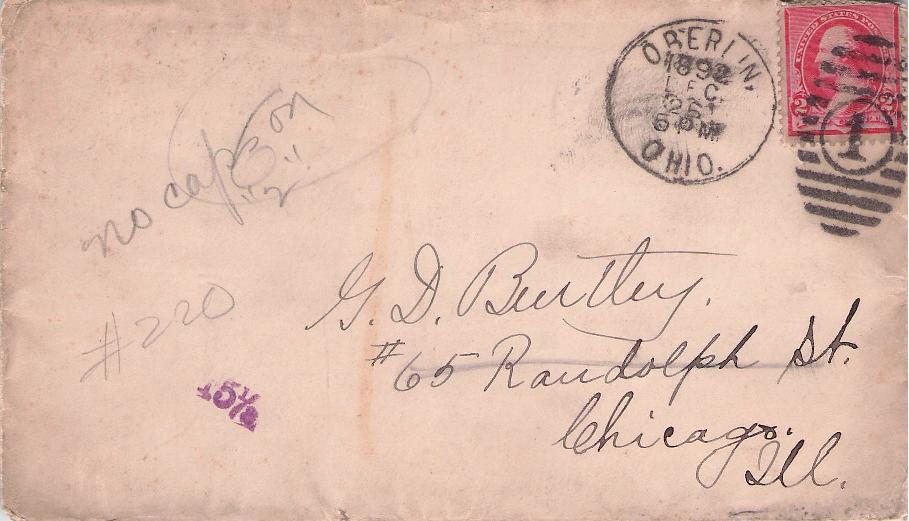 OBERLIN,
1892
DEC
6 PM
OHIO.
UNITED STATES POS
2
1
no cap on
"2"
G. D. Buntley.
#65 Randolph St.
Chicago.
Ill.
#220
15½